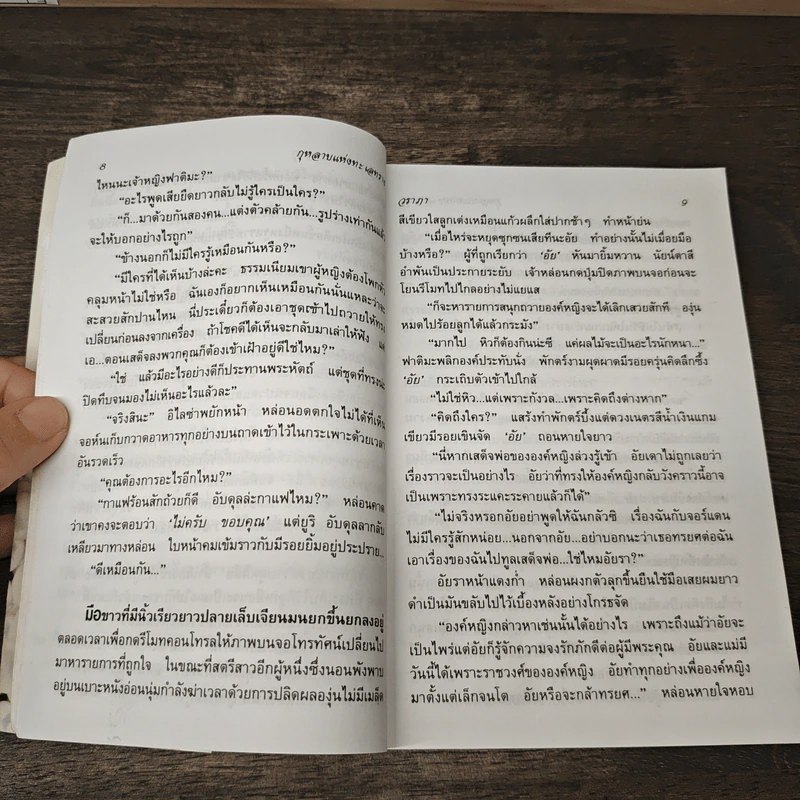 ๘
กุหลาบแห่งทะเลทราย
ไหนนะเจ้าหญิงฟาติมะ?”
“อะไรพูดเสียยืดยาวกลับไม่รู้ใครเป็นใคร?”
“ก็...มาด้วยกันสองคน...แต่งตัวคล้ายกัน...รูปร่างเท่ากันแล้ว
จะให้บอกอย่างไรถูก”
“ข้างนอกก็ไม่มีใครรู้เหมือนกันหรือ?”
“มีใครที่ได้เห็นบ้างล่ะคะ ธรรมเนียมเขาผู้หญิงต้องโพกหัว
คลุมหน้าไม่ใช่หรือ ฉันเองก็อยากเห็นเหมือนกันนั่นแหละว่าจะ
สะสวยสักปานไหน นี่ประเดี๋ยวก็ต้องเอาชุดเข้าไปถวายให้ทรง
เปลี่ยนก่อนลงจากเครื่อง ถ้าโชคดีได้เห็นจะกลับมาเล่าให้ฟัง แต่
เอ...ตอนเสด็จลงพวกคุณก็ต้องเข้าเฝ้าอยู่ดีใช่ไหม?”
“ใช่ แล้วมีอะไรอย่างดีก็ประทานพระหัตถ์ แต่ชุดที่ทรงน่ะ
ปิดทึบจนมองไม่เห็นอะไรแล้วละ”
“จริงสินะ” อิไลซ่าพยักหน้า หล่อนอดตกใจไม่ได้ที่เห็น
จอห์นเก็บกวาดอาหารทุกอย่างบนถาดเข้าไว้ในกระเพาะด้วยเวลา
อันรวดเร็ว
“คุณต้องการอะไรอีกไหม?”
“กาแฟร้อนสักถ้วยก็ดี อับดุลล่ะกาแฟไหม?” หล่อนคาด
ว่าเขาคงจะตอบว่า ‘ไม่ครับ ขอบคุณ’ แต่ยูริ อับดุลลากลับ
เหลียวมาทางหล่อน ใบหน้าคมเข้มราวกับมีรอยยิ้มอยู่ประปราย...
“ดีเหมือนกัน...”
มือขาวที่มีนิ้วเรียวยาวปลายเล็บเจียนมนยกขึ้นยกลงอยู่
ตลอดเวลาเพื่อกดรีโมทคอนโทรลให้ภาพบนจอโทรทัศน์เปลี่ยนไป
มาหารายการที่ถูกใจ ในขณะที่สตรีสาวอีกผู้หนึ่งซึ่งนอนพังพาบ
อยู่บนเบาะหนังอ่อนนุ่มกำลังฆ่าเวลาด้วยการปลิดผลองุ่นไม่มีเมล็ด
วราภา
๙
สีเขียวใสลูกเต่งเหมือนแก้วผลึกใส่ปากช้าๆ ทำหน้าย่น
“เมื่อไหร่จะหยุดซุกซนเสียทีนะอัย ทำอย่างนั้นไม่เมื่อยมือ
บ้างหรือ?” ผู้ที่ถูกเรียกว่า ‘อัย’ หันมายิ้มหวาน นัยน์ตาสี
อำพันเป็นประกายระยับ เจ้าหล่อนกดปุ่มปิดภาพบนจอก่อนจะ
โยนรีโมทไปไกลอย่างไม่แยแส
“ก็จะหารายการสนุกถวายองค์หญิงจะได้เลิกเสวยสักที องุ่น
หมดไปร้อยลูกได้แล้วกระมัง”
“มากไป หิวก็ต้องกินน่ะซี แค่ผลไม้จะเป็นอะไรนักหนา...”
ฟาติมะพลิกองค์ประทับนั่ง พักตร์งามผุดผาดมีรอยครุ่นคิดลึกซึ้ง
‘อัย’ กระเถิบตัวเข้าไปใกล้
“ไม่ใช่หิว...แต่เพราะกังวล...เพราะคิดถึงต่างหาก”
“คิดถึงใคร?” แสร้งทำพักตร์บึ้งแต่ดวงเนตรสีน้ำเงินแกม
เขียวมีรอยเขินจัด ‘อัย’ ถอนหายใจยาว
“นี่หากเสด็จพ่อขององค์หญิงล่วงรู้เข้า อัยเดาไม่ถูกเลยว่า
เรื่องราวจะเป็นอย่างไร อัยว่าที่ทรงให้องค์หญิงกลับวังคราวนี้อาจ
เป็นเพราะทรงระแคะระคายแล้วก็ได้”
“ไม่จริงหรอกอัยอย่าพูดให้ฉันกลัวซิ เรื่องฉันกับจอร์แดน
ไม่มีใครรู้สักหน่อย...นอกจากอัย...อย่าบอกนะว่าเธอทรยศต่อฉัน
เอาเรื่องของฉันไปทูลเสด็จพ่อ...ใช่ไหมอัยรา?”
อัยราหน้าแดงก่ำ หล่อนผงกตัวลุกขึ้นยืนใช้มือเสยผมยาว
ดำเป็นมันขลับไปไว้เบื้องหลังอย่างโกรธจัด
“องค์หญิงกล่าวหาเช่นนั้นได้อย่างไร เพราะถึงแม้ว่าอัยจะ
เป็นไพร่แต่อัยก็รู้จักความจงรักภักดีต่อผู้มีพระคุณ อัยและแม่มี
วันนี้ได้เพราะราชวงศ์ขององค์หญิง อัยทำทุกอย่างเพื่อองค์หญิง
มาตั้งแต่เล็กจนโต อัยหรือจะกล้าทรยศ...” หล่อนหายใจหอบ